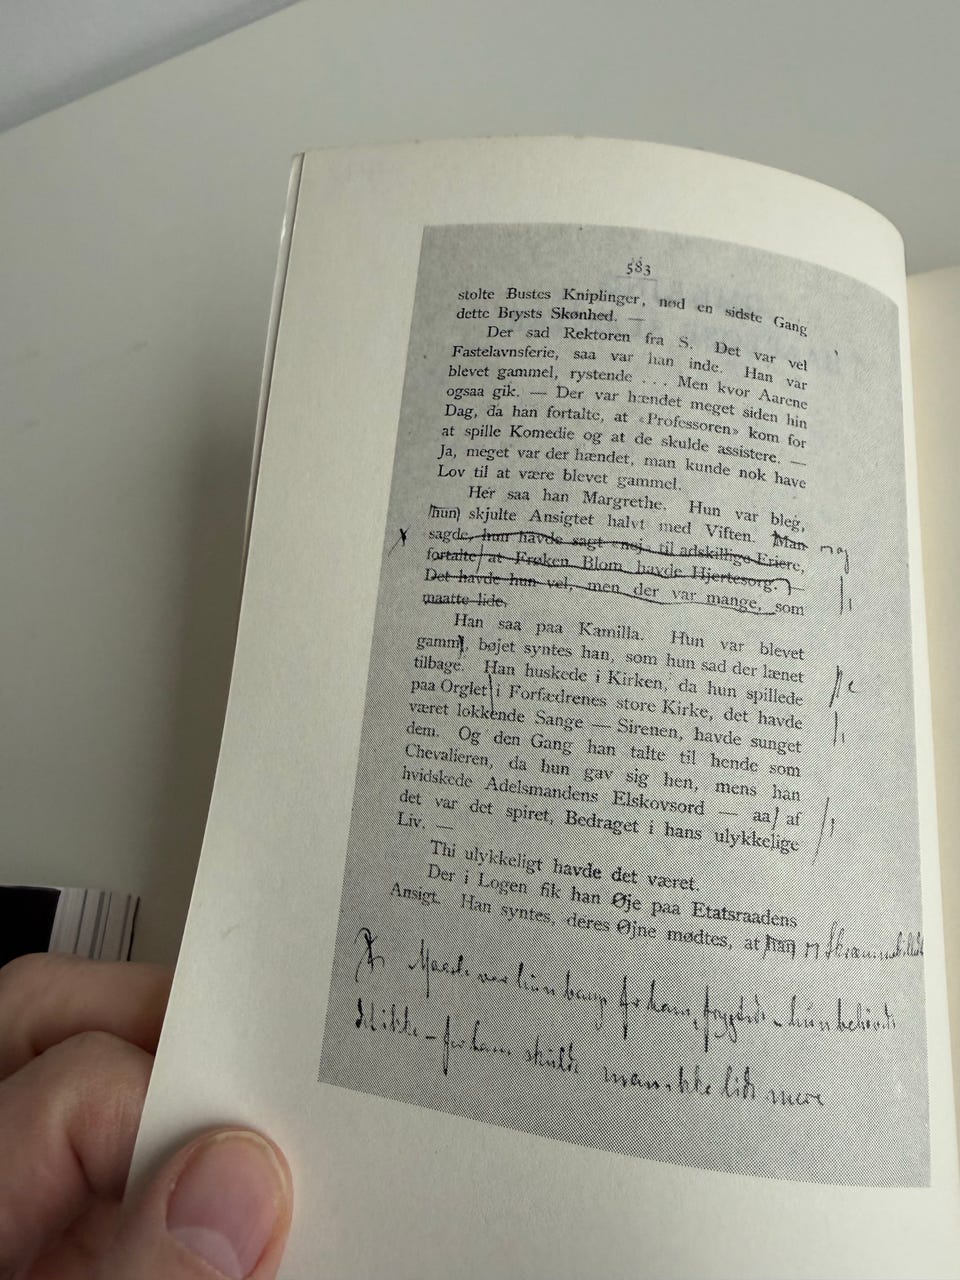 583
stolte Bustes Kniplinger, nød en sidste Gang
dette Brysts Skønhed. —
Der sad Rektoren fra S. Det var vel
Fastelavnsferie, saa var han inde. Han var
blevet gammel, rystende . . . Men kvor Aarene
ogsaa gik. — Der var hændet meget siden hin
Dag, da han fortalte, at «Professoren» kom for
at spille Komedie og at de skulde assistere. —
Ja, meget var der hændet, man kunde nok have
Lov til at være blevet gammel.
Her saa han Margrethe. Hun var bleg,
hun skjulte Ansigtet halvt med Viften. Man
sagde, hun havde sagt «nej» til adskillige Friere,
fortalte at Frøken Blom havde Hjertesorg. —
Det havde hun vel, men der var mange, som
maatte lide.
Han saa paa Kamilla. Hun var blevet
gamml, bøjet syntes han, som hun sad der lænet
tilbage. Han huskede i Kirken, da hun spillede
paa Orglet i Forfædrenes store Kirke, det havde
været lokkende Sange — Sirenen, havde sunget
dem. Og den Gang han talte til hende som
Chevalieren, da hun gav sig hen, mens han
hvidskede Adelsmandens Elskovsord — aa af
det var det spiret, Bedraget i hans ulykkelige
Liv. —
Thi ulykkeligt havde det været.
Der i Logen fik han Øje paa Etatsraadens
Ansigt. Han syntes, deres Øjne mødtes, at han
Maaske var hun bang for ham, frygtede – hun behøvede
det ikke – for ham skulde man ikke lide mere